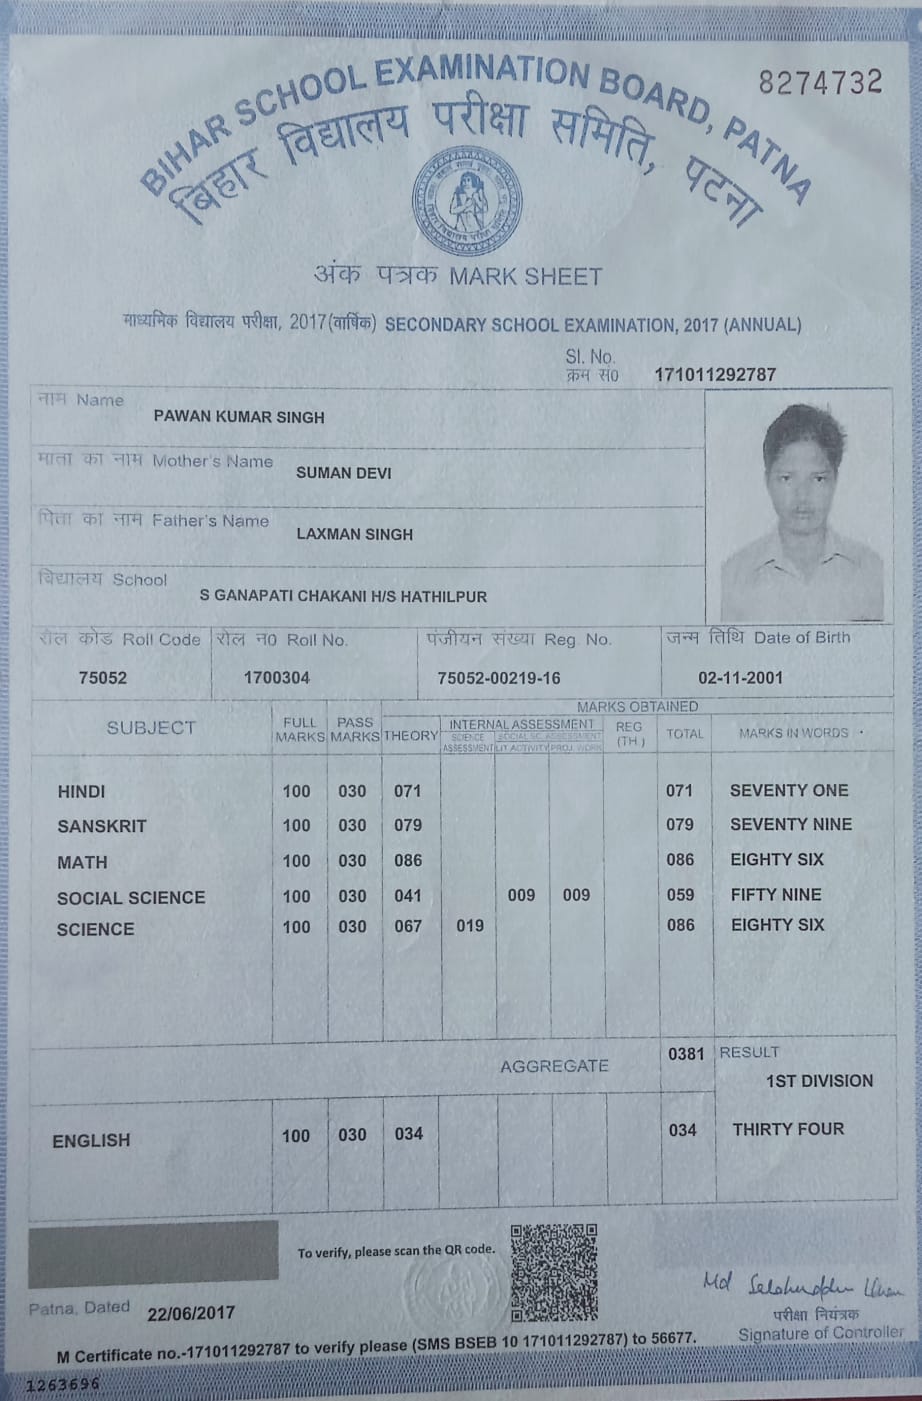 8274732
BIHAR SCHOOL EXAMINATION BOARD, PATNA
बिहार विद्यालय परीक्षा समिति, पटना
अंक पत्रक MARK SHEET
माध्यमिक विद्यालय परीक्षा, 2017(वार्षिक) SECONDARY SCHOOL EXAMINATION, 2017 (ANNUAL)
Sl. No.
क्रम सं0 171011292787
नाम Name
PAWAN KUMAR SINGH
माता का नाम Mother's Name
SUMAN DEVI
पिता का नाम Father's Name
LAXMAN SINGH
विद्यालय School
S GANAPATI CHAKANI H/S HATHILPUR
रोल कोड Roll Code रोल न0 Roll No. पंजीयन संख्या Reg. No. जन्म तिथि Date of Birth
75052 1700304 75052-00219-16 02-11-2001
MARKS OBTAINED
SUBJECT FULL MARKS PASS MARKS THEORY INTERNAL ASSESSMENT REG (TH.) TOTAL MARKS IN WORDS
SCIENCE SOCIAL SC. ASSESSMENT
ASSESSMENT LIT ACTIVITY PROJ. WORK
HINDI 100 030 071 071 SEVENTY ONE
SANSKRIT 100 030 079 079 SEVENTY NINE
MATH 100 030 086 086 EIGHTY SIX
SOCIAL SCIENCE 100 030 041 009 009 059 FIFTY NINE
SCIENCE 100 030 067 019 086 EIGHTY SIX
AGGREGATE 0381 RESULT
1ST DIVISION
ENGLISH 100 030 034 034 THIRTY FOUR
To verify, please scan the QR code.
Md Salahuddin Khan
Patna, Dated 22/06/2017
परीक्षा नियंत्रक
Signature of Controller
M Certificate no.-171011292787 to verify please (SMS BSEB 10 171011292787) to 56677.
1263696